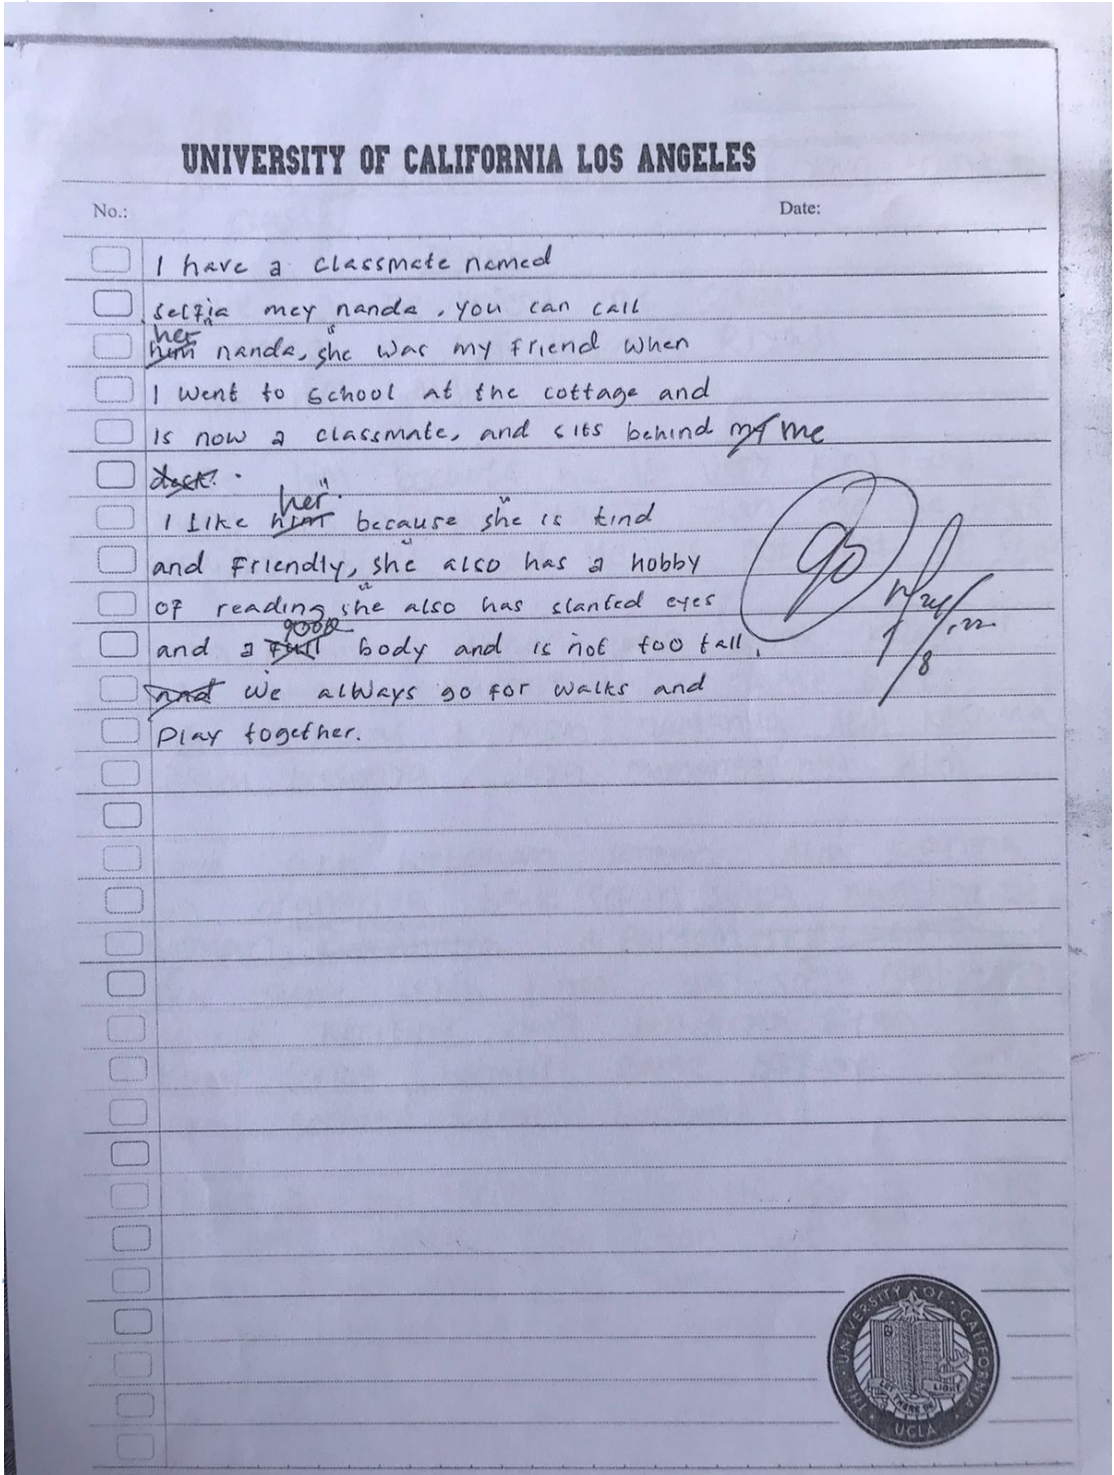 UNIVERSITY OF CALIFORNIA LOS ANGELES
No.: Date:
I have a classmate named
selfia mey nanda, you can call
her
him nanda, she was my friend when
I went to school at the cottage and
is now a classmate, and sits behind my me
desk.
her
I like him because she is kind
and friendly, she also has a hobby
of reading she also has slanted eyes
good
and a full body and is not too tall,
and we always go for walks and
play together.
90
THE UNIVERSITY OF CALIFORNIA
LET THERE BE LIGHT
UCLA